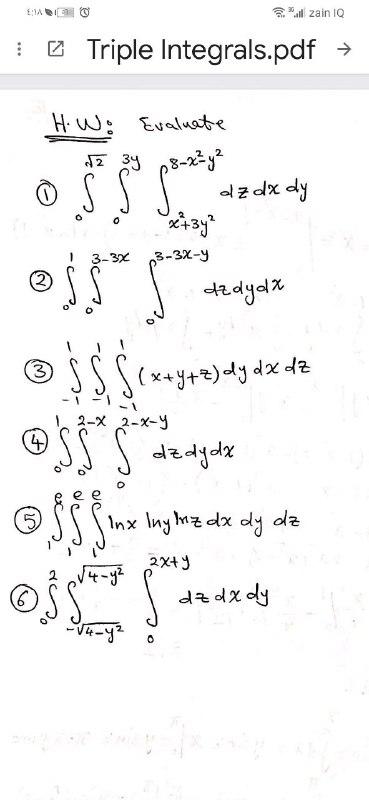 zain IQ
Triple Integrals.pdf
H.W: Evaluate
① ∫₀^√2 ∫₀^3y ∫_{x²+3y²}^{8-x²-y²} dz dx dy
② ∫₀^1 ∫₀^{3-3x} ∫₀^{3-3x-y} dz dy dx
③ ∫₋₁^1 ∫₋₁^1 ∫₋₁^1 (x+y+z) dy dx dz
④ ∫₀^1 ∫₀^{2-x} ∫₀^{2-x-y} dz dy dx
⑤ ∫₁^e ∫₁^e ∫₁^e lnx lny lnz dx dy dz
⑥ ∫₀^2 ∫_{-√4-y²}^{√4-y²} ∫₀^{2x+y} dz dx dy